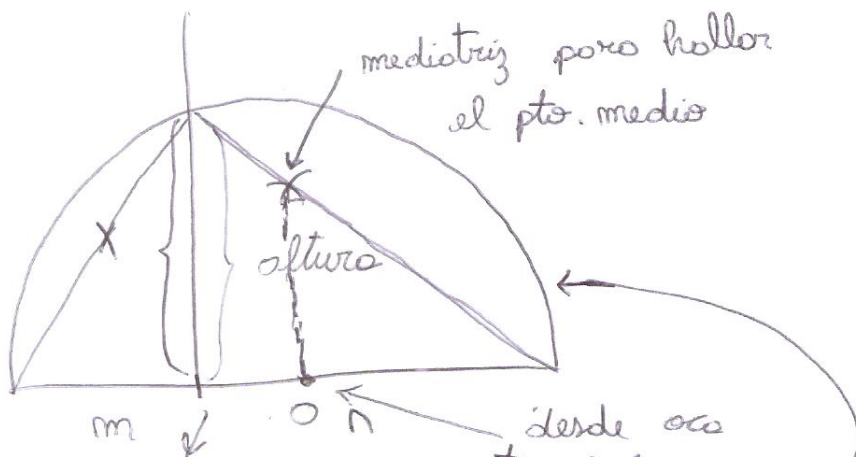 mediatriz para hallar
el pto. medio
altura
m
O
n
desde acá